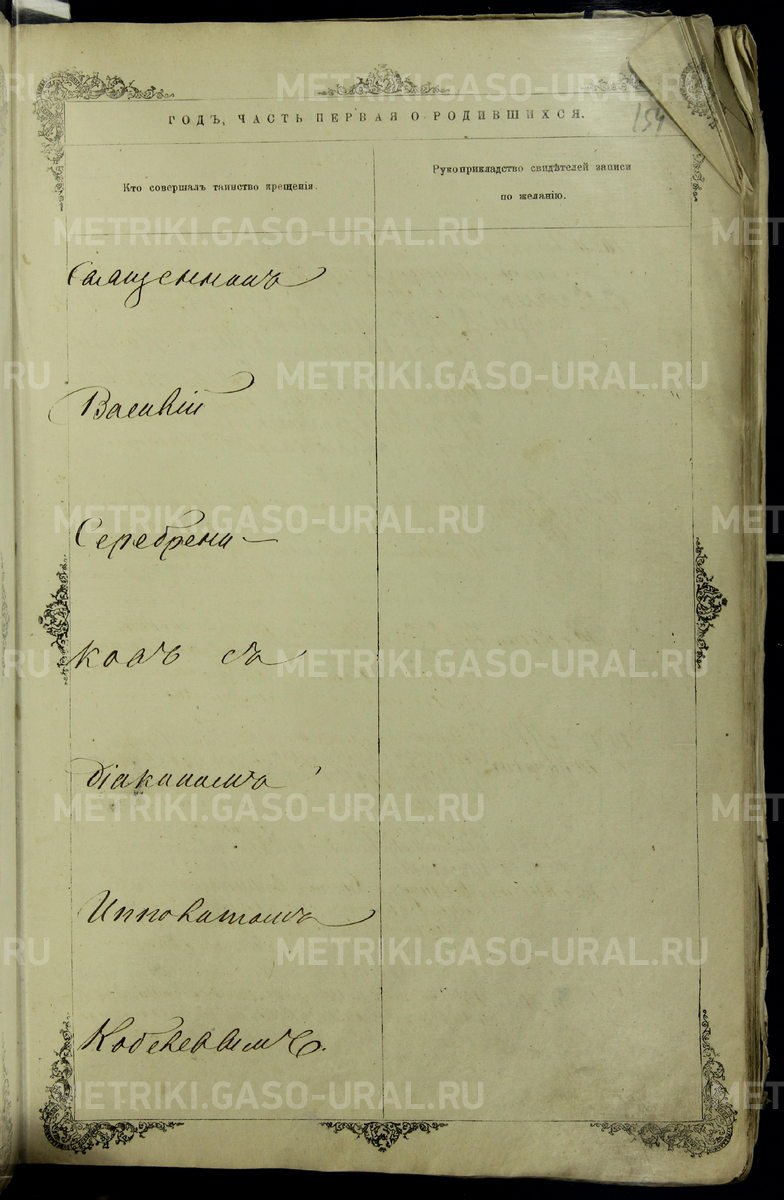 ГОДЪ, ЧАСТЬ ПЕРВАЯ О РОДИВШИХСЯ.
154
Кто совершалъ таинство крещенія.
Рукоприкладство свидѣтелей записи
по желанію.
Священникъ
Василій
Серебрени-
ковъ съ
діакономъ
Инпокатомъ
METRIKI.GASO-URAL.RU